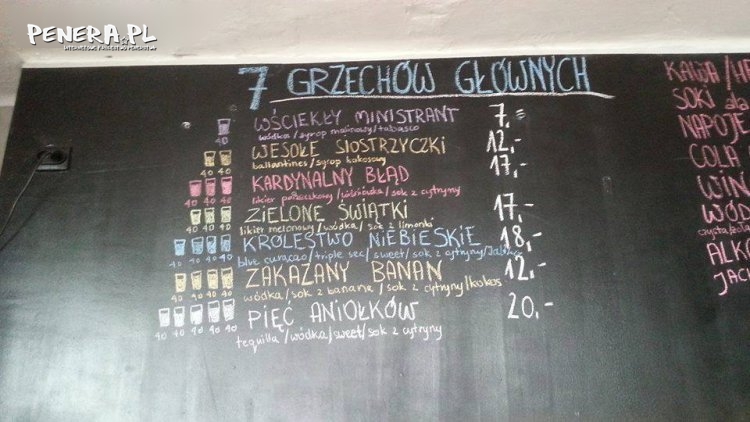 PENERA.PL
7 GRZECHÓW GŁÓWNYCH
WŚCIEKŁY MINISTRANT 7,=
40
wódka/syrop malinowy/tabasco
WESOŁE SIOSTRZYCZKI 12,-
40 40
ballantines/syrop kokosowy
KARDYNALNY BŁĄD 17,-
40 40 40
likier porzeczkowy/wiśniówka/sok z cytryny
ZIELONE ŚWIĄTKI 17,-
40 40 40
likier melonowy/wódka/sok z limonki
KRÓLESTWO NIEBIESKIE 18,-
40 40 40 40
blue curaçao/triple sec/sweet/sok z cytryny
ZAKAZANY BANAN 12,-
40 40 40 40
wódka/sok z banana/sok z cytryny/kokos
PIĘĆ ANIOŁKÓW 20,-
40 40 40 40 40
tequilla/wódka/sweet/sok z cytryny
KAWA/HE
SOKI ala
NAPOJE
COLA
WIN
WÓD
czysta/kola
ALKO
JAC